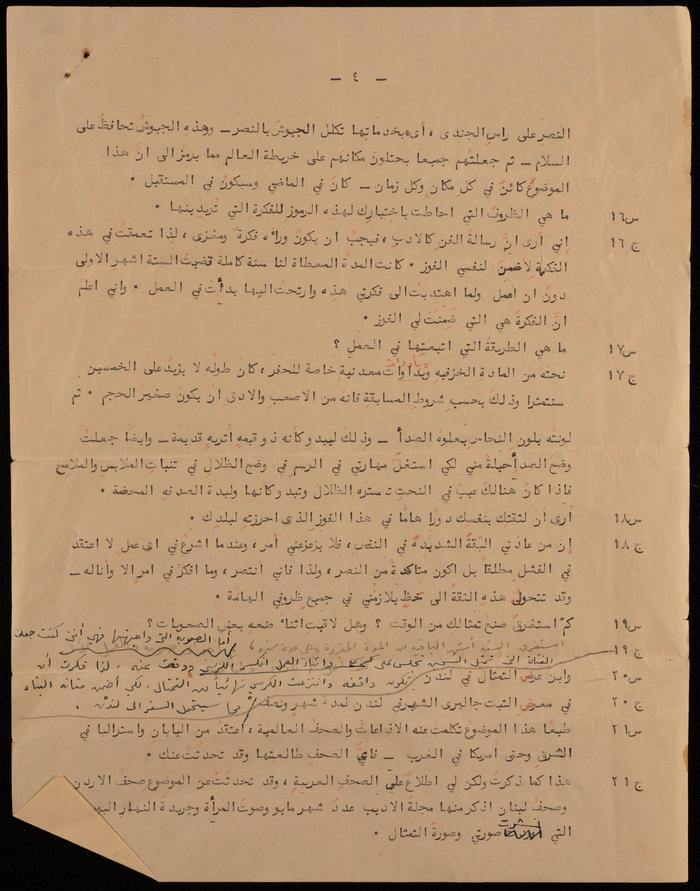 - ٤ -
النصر على راس الجندى ، أى بخدماتها تكلل الجيوش بالنصر ـ وهذه الجيوش تحافظ على
السلام ـ ثم جعلتهم جميعا يحتلون مكانهم على خريطة العالم مما يرمز الى ان هذا
الموضوع كائن في كل مكان وكل زمان ـ كان في الماضي وسيكون في المستقبل .
س١٦ ما هي الظروف التي احاطت باختيارك لهذه الرموز للفكرة التي تريدينها .
ج١٦ إني أرى ان رسالة الفن كالادب ، فيجب ان يكون وراءه فكرة ومغزى ، لذا تعمقت في هذه
الفكرة لاضمن لنفسي الفوز . كانت المدة المعطاة لنا سنة كاملة قضيت الستة اشهر الاولى
دون ان اعمل ولما اهتديت الى فكرتي هذه وارتحت اليها بدأت في العمل . واني اعلم
ان الفكرة هي التي ضمنت لي الفوز .
س١٧ ما هي الطريقة التي اتبعتها في العمل ؟
ج١٧ نحته من المادة الخزفيه وبأدوات معدنية خاصة للحفر ، كان طوله لا يزيد على الخمسين
سنتمترا وذلك بحسب شروط المسابقة فانه من الاصعب والادق ان يكون صغير الحجم . ثم
لونته بلون النحاس يعلوه الصدأ ـ وذلك ليبدو وكأنه ذو قيمه أثريه قديمة ـ وايضا جعلت
وضع الصدأ حيلة مني لكي استغل مهارتي في الرسم في وضع الظلال في ثنيات الملابس والملامح
فاذا كان هنالك عيب في النحت تستره الظلال وتبدو كانها وليدة الصدفه المحضة .
س١٨ أرى أن لثقتك بنفسك دورا هاما في هذا الفوز الذى احرزته لبلدك .
ج١٨ إن من عادتي الثقة الشديدة في النفس ، فلا يزعزعني أمر ، وعندما اشرع في اى عمل لا اعتقد
في الفشل مطلقا بل اكون متاكدة من النصر ، ولذا فاني أنتصر ، وما افكر في امر الا وأناله ـ
وقد تتحول هذه الثقة الى حظ يلازمني في جميع ظروفي الهامة .
س١٩ كم استغرق صنع تمثالك من الوقت ؟ وهل لاقيت اثناء صنعه بعض الصعوبات ؟
أما الصعوبة التي واجهتها فهي أنني كنت جعلت
ج١٩ استغرق الستة أشهر الباقية من المدة المقررة وهي مدة سنة
الفتاة التي تمثل تجلس على واثناء العمل انكسر الكرسي ووقعت عنه . لذا فكرت أن
س٢٠ واين عرض التمثال في لندن تكون واقفة وانتزعت الكرسي نهائياً من التمثال . لكي أضمن متانه البناء
ج٢٠ في معرض التيت جاليرى الشهير في لندن لمدة شهر ونصف سيتحمل السفر الى لندن .
س٢١ طبعا هذا الموضوع تكلمت عنه الاذاعات والصحف العالمية ، اعتقد من اليابان واستراليا في
الشرق وحتى أمريكا في الغرب ـ فاي الصحف طالعتها وقد تحدثت عنك .
ج٢١ هذا كما ذكرت ولكن لي اطلاع على الصحف العربية ، وقد تحدثت عن الموضوع صحف الاردن
وصحف لبنان اذكر منها مجلة الاديب عدد شهر مايو وصوت المرأة وجريدة النهار
التي نشرت صورتي وصورة التمثال .